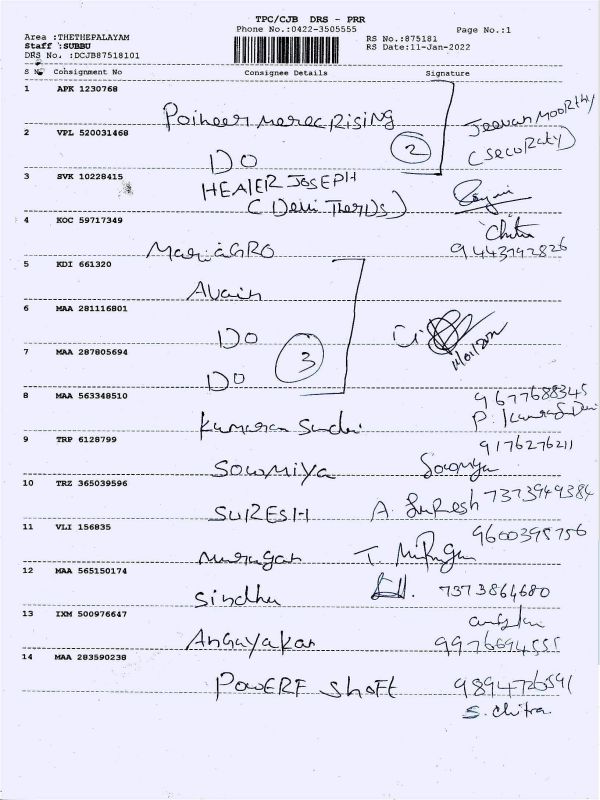 TPC/CJB DRS - PRR
Phone No.:0422-3505555
Page No.:1
Area :THETHEPALAYAM
Staff :SUBBU
DRS No. :DCJB87518101
RS No.:875181
RS Date:11-Jan-2022
S No Consignment No Consignee Details Signature
1 APK 1230768
Poineer merec RISING
Jeevan MOORthy
2 VPL 520031468
2
(SecoRcty)
DO
3 SVK 10228415
HEALER JOSEPH
(Devi Therds)
4 KOC 59717349
Chitra
MariAGRO
9443792826
5 KDI 661320
Avain
6 MAA 281116801
DO
3
7 MAA 287805694
DO
8 MAA 563348510
9677688345
Kumaran Sindhi
9 TRP 6128799
9176276211
SOWMIYA
Sowmya
10 TRZ 365039596
SURESH
A. SuResh 7373949384
11 VLI 156835
9600395756
murugan
T. Murugan
12 MAA 565150174
Sindhu
7373864680
13 IXM 500976647
Angayakan
9976694555
14 MAA 283590238
POWERF Shaft
9894726591
S. Chitra.